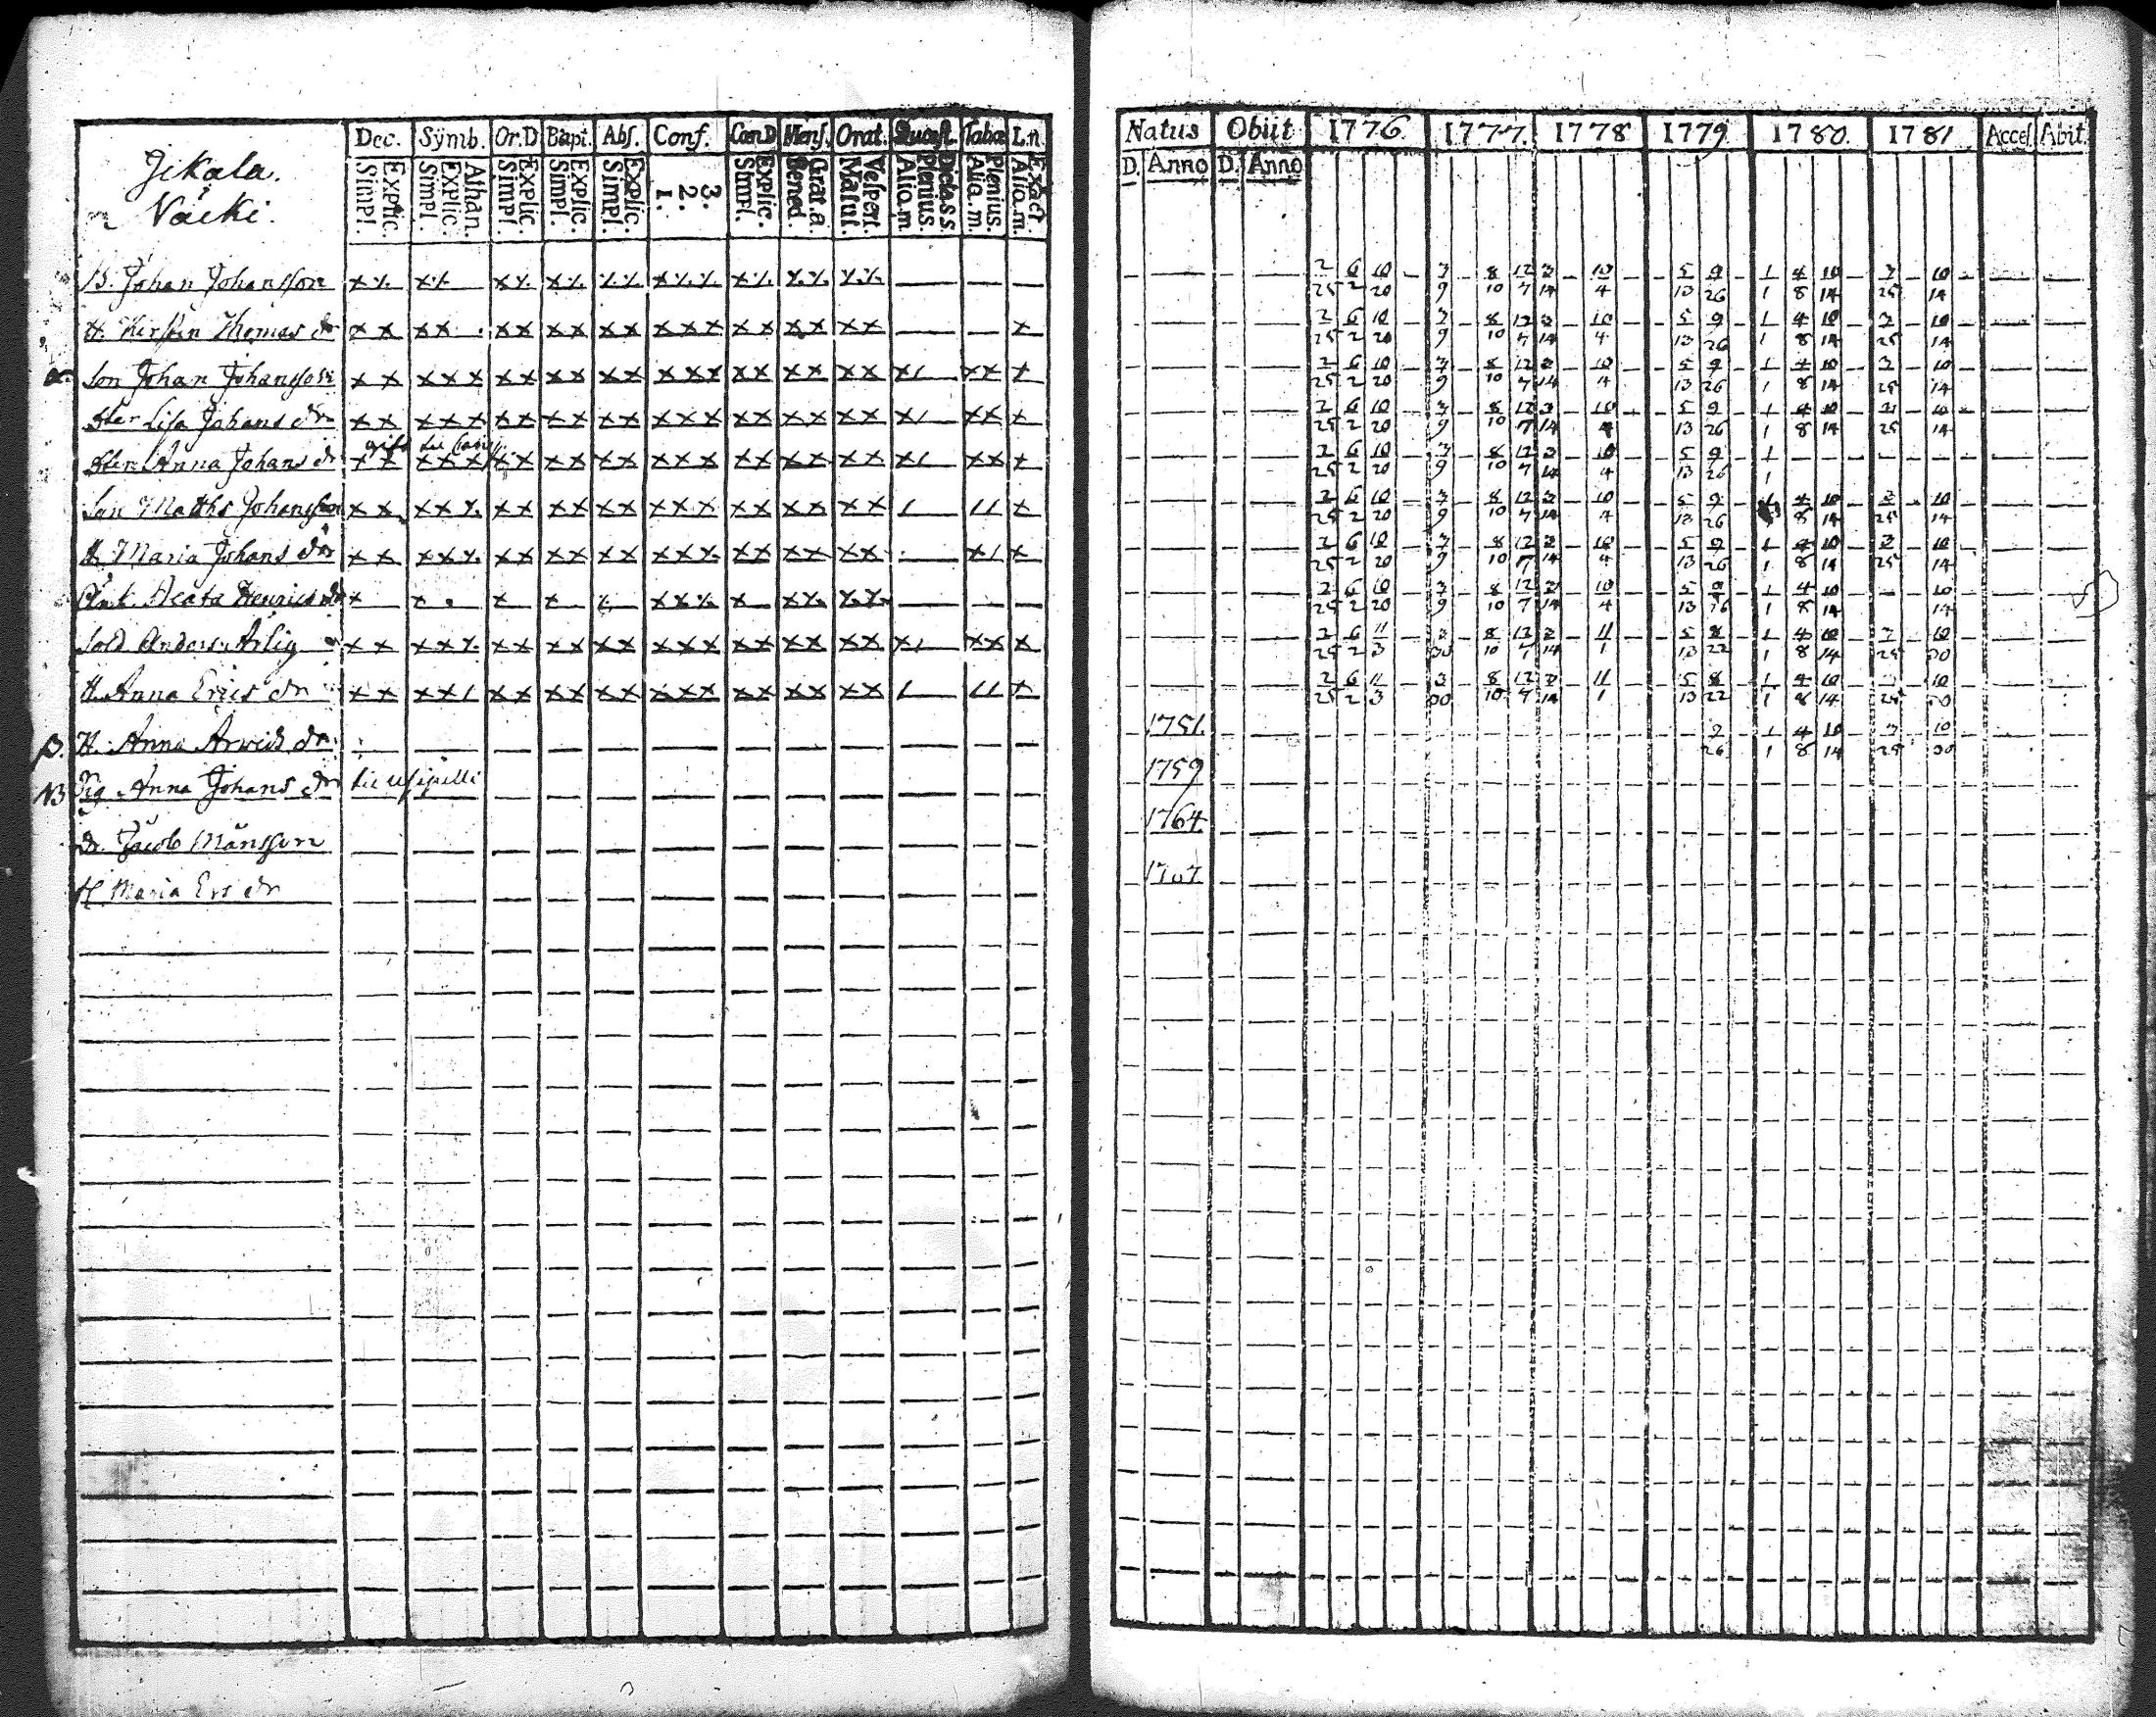 Jikala.
Näcki.
Dec. Symb. Or.D Bapt. Abs. Conf. Cœn.D Mens. Orat. Quæst. Tabæ L.n.
Simpl. Explic. Simpl. Explic. Athan. Simpl. Explic. Simpl. Explic. Simpl. Explic. 1. 2. 3. Simpl. Explic. Bened. Grat.a Matut. Vespert. Aliq.m Plenius. Dict.s.s. Aliq.m. Plenius. Aliq.m. Exact.
B. Johan Johansson
H. Kirstin Thomas dr
Son Johan Johansson
dter Lisa Johans dr
dter Anna Johans dr gift till
Son Matths Johansson
H. Maria Johans dr
Enk. Beata Henrics dr
Sold Anders Ärlig
H. Anna Erics dr
H. Anna Arvids dr
NB Pig. Anna Johans dr
dr. Jacob Månsson
H. Maria Ers dr
Natus Obiit 1776. 1777. 1778 1779. 1780. 1781 Acces. Abit.
D. Anno D. Anno
2 6 10 3 8 12 2 10 5 9 1 4 10 3 10
25 2 20 9 10 7 14 4 13 26 1 8 14 25 14
2 6 10 3 8 12 2 10 5 9 1 4 10 3 10
25 2 20 9 10 7 14 4 13 26 1 8 14 25 14
2 6 10 3 8 12 2 10 5 9 1 4 10 3 10
25 2 20 9 10 7 14 4 13 26 1 8 14 25 14
2 6 10 3 8 12 2 10 5 9 1 4 10 3 10
25 2 20 9 10 7 14 4 13 26 1 8 14 25 14
2 6 10 3 8 12 2 10 5 9 1
25 2 20 9 10 7 14 4 13 26 1
2 6 10 3 8 12 2 10 5 9 1 4 10 3 10
25 2 20 9 10 7 14 4 13 26 8 14 25 14
2 6 10 3 8 12 2 10 5 9 1 4 10 3 10
25 2 20 9 10 7 14 4 13 26 1 8 14 25 14
2 6 10 3 8 12 2 10 5 9 1 4 10 10
25 2 20 9 10 7 14 4 13 26 1 8 14 14
2 6 11 3 8 12 2 11 5 8 1 4 10 3 10
25 2 3 30 10 7 14 1 13 22 1 8 14 25 30
2 6 11 3 8 12 2 11 5 8 1 4 10 3 10
25 2 3 30 10 7 14 1 13 22 1 8 14 25 30
1751. 9 1 4 10 3 10
26 1 8 14 25 30
1759
1764.